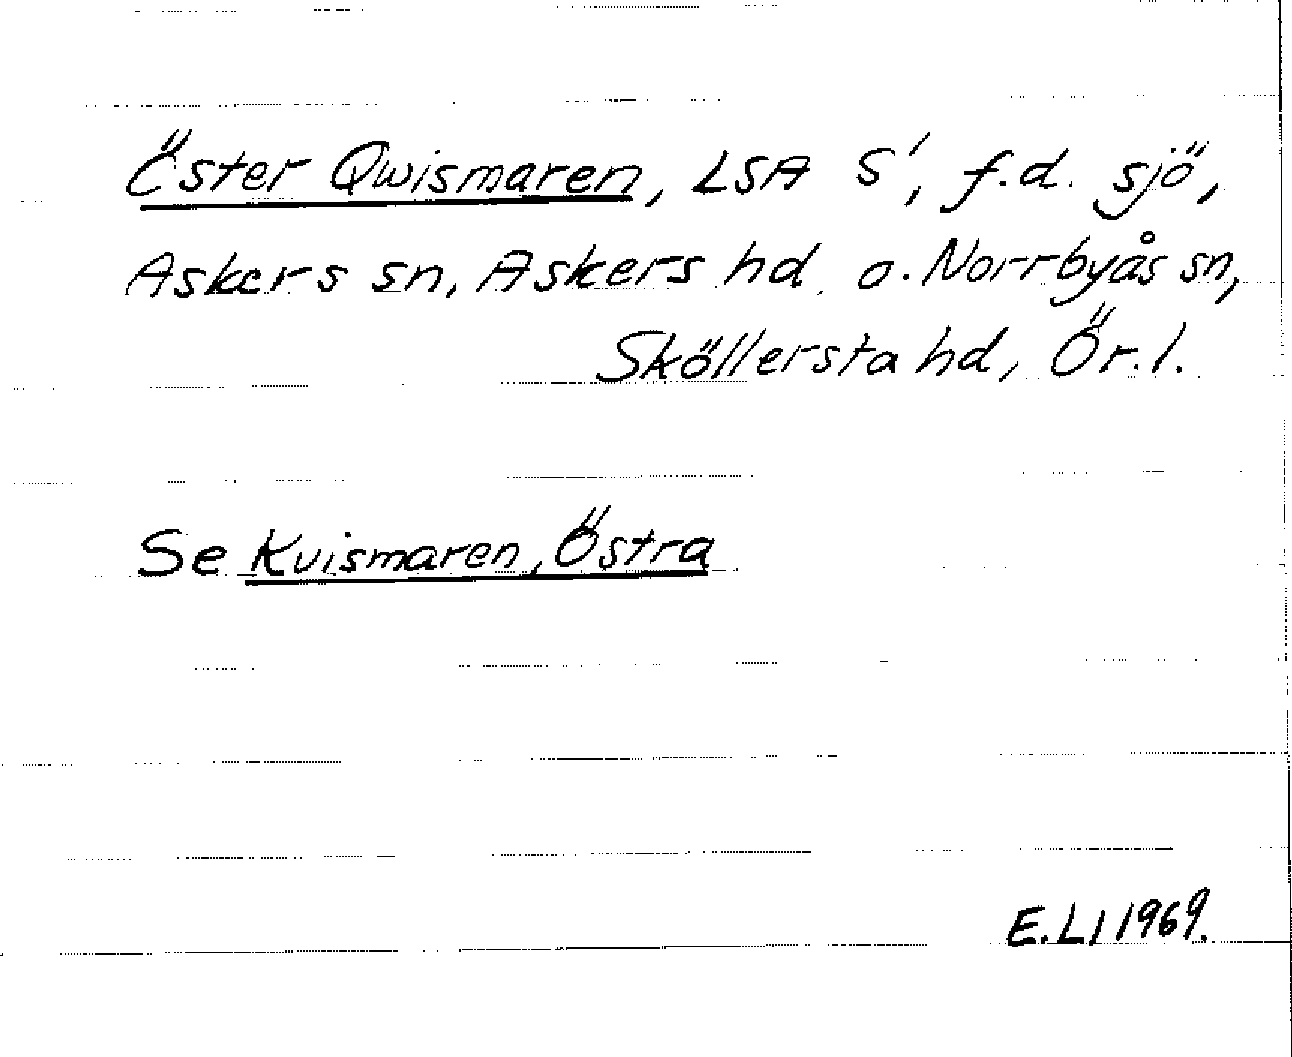 Öster Qwismaren, LSA S', f.d. sjö,
Askers sn, Askers hd. o. Norrbyås sn,
Sköllersta hd, Ör. l.
Se Kvismaren, Östra
E.Ll 1969.